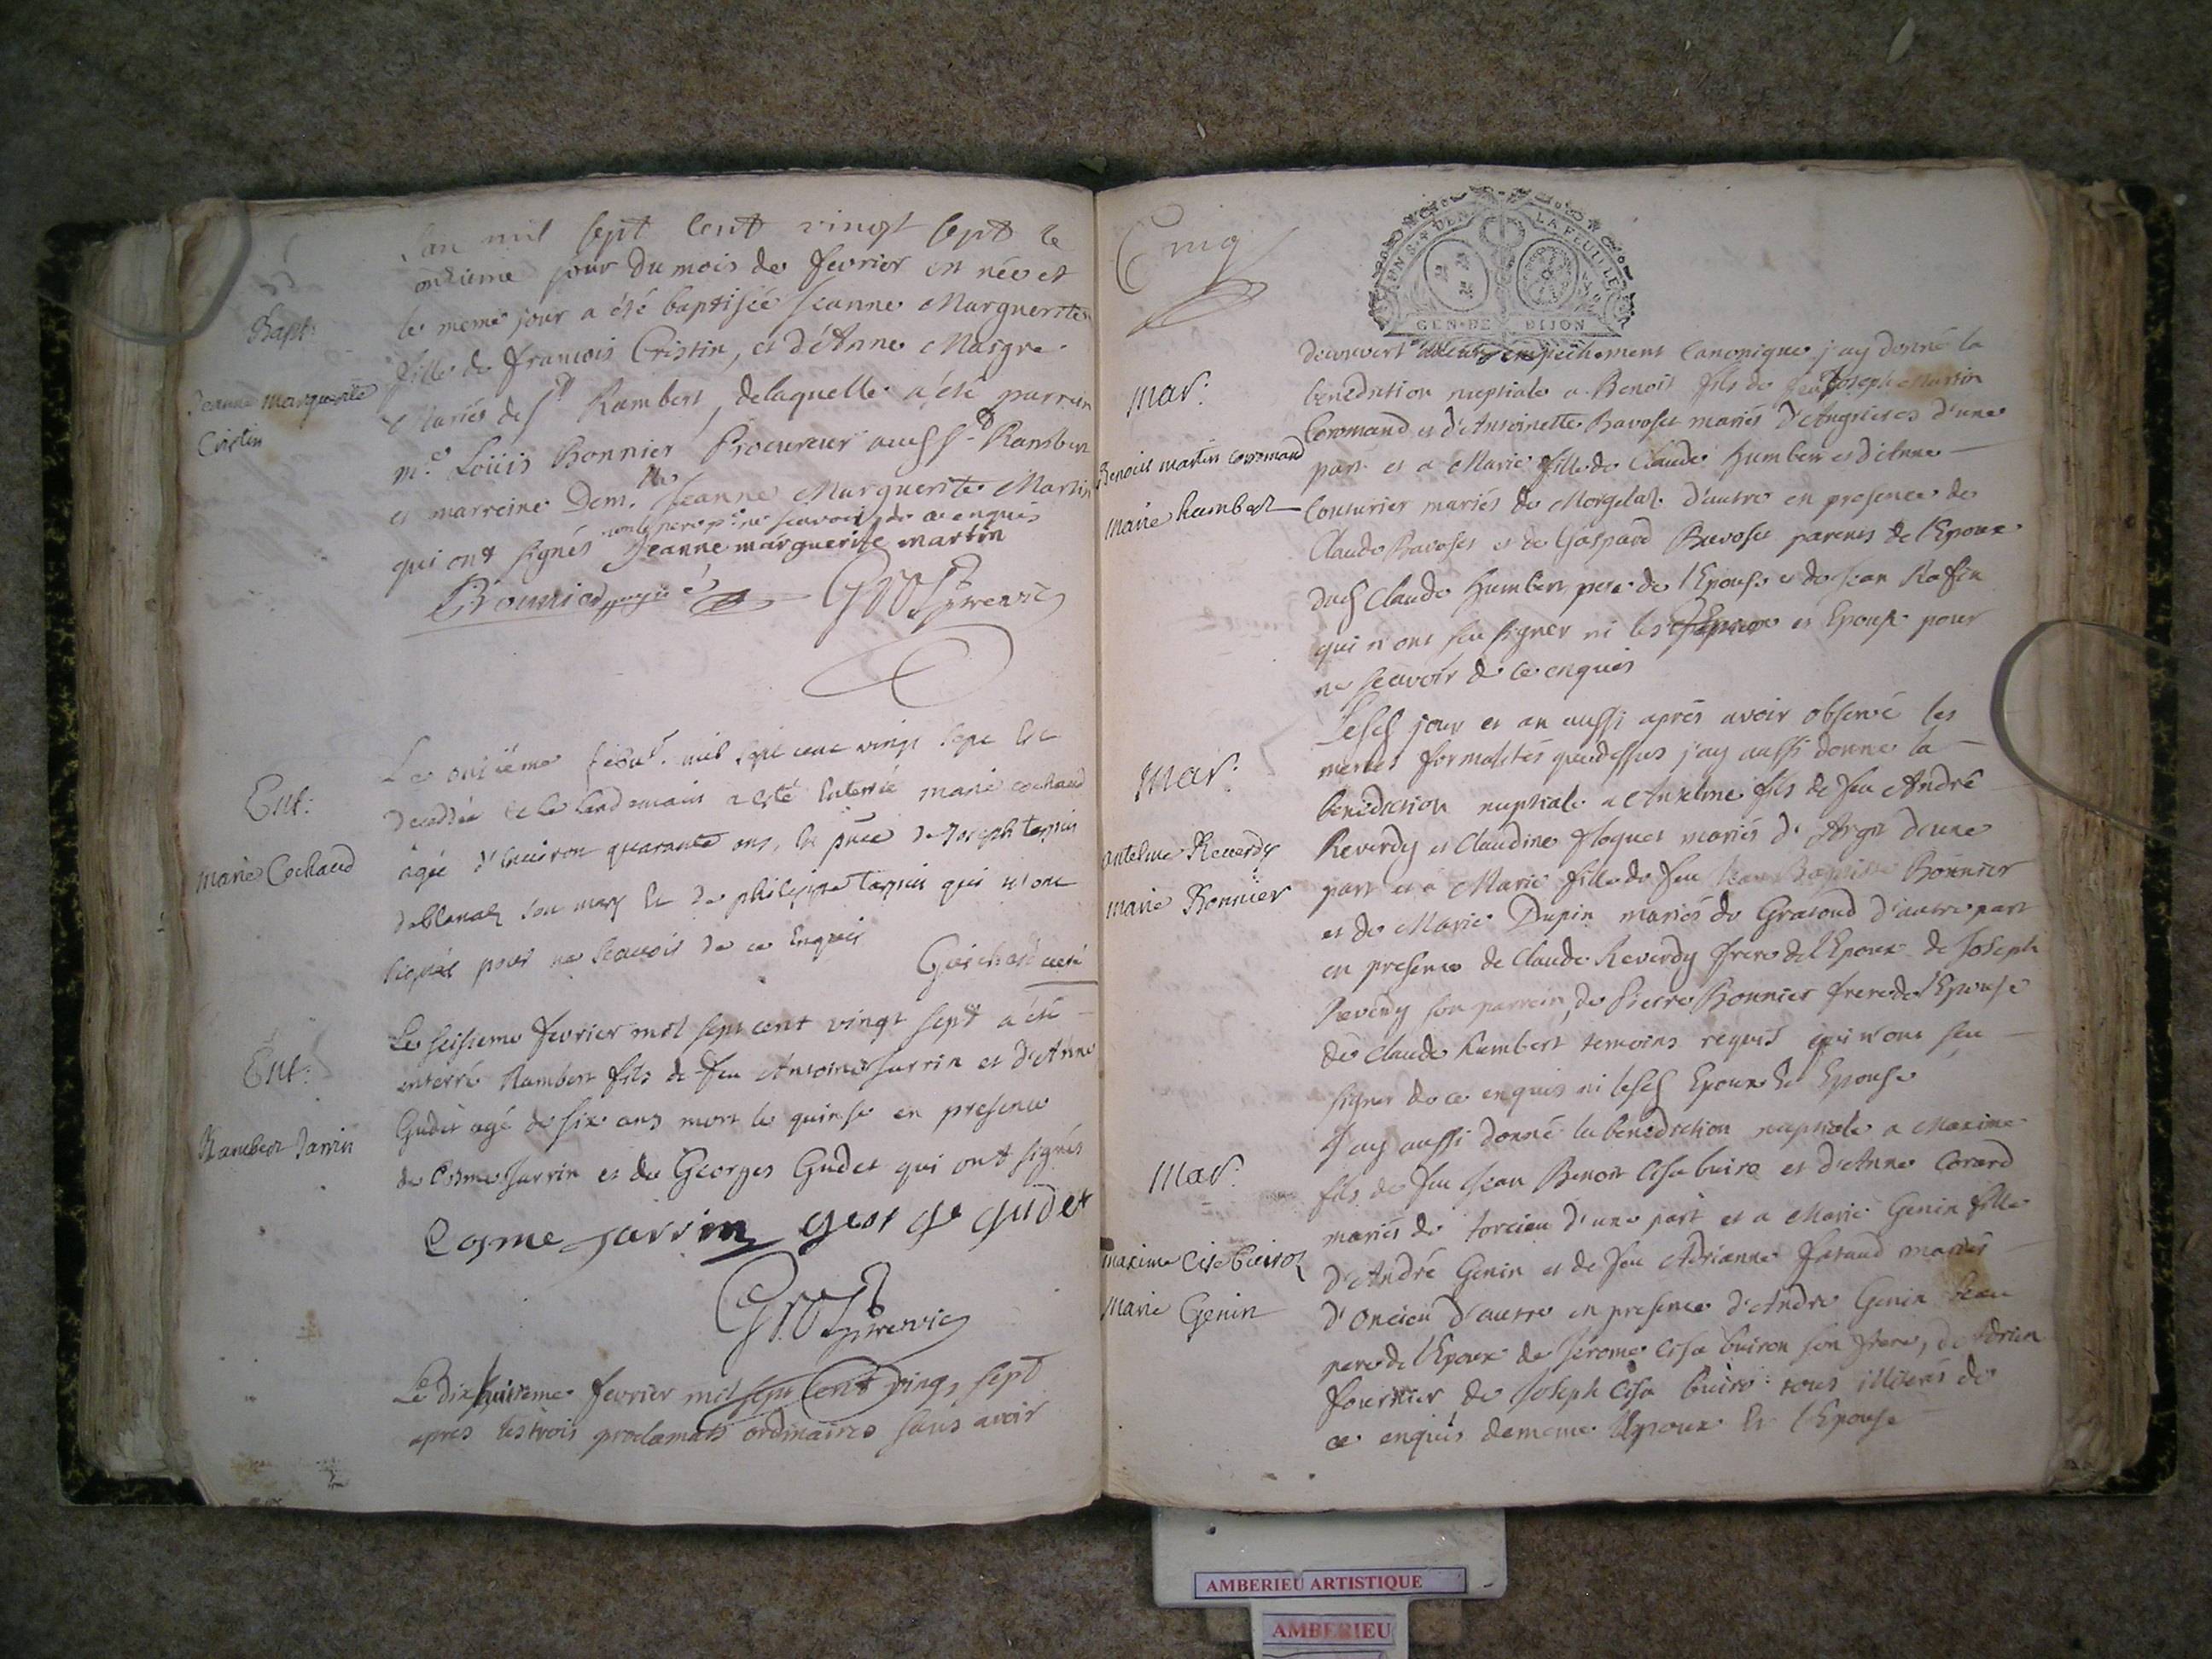 L'an mil sept cent vingt sept le
onzieme jour du mois de fevrier est née et
Bapt: le meme jour a été baptisée Jeanne Marguerite
fille de francois Cristin, et d'Anne Maigre
Jeanne marguerite Cristin
Mariés de St Rambert, delaquelle a été parrain
me. Loüis Bonnier Procureur aud St Rambert
et marreine Dem.lle Jeanne Marguerite Martin
qui ont signés non le pere pr ne scavoir de ce enquis
Jeanne marguerite martin
Bonnier Grosf vic
Le onzieme febvr. mil sept cent vingt sept est
Ent: decedée et le lendemain a esté enterrée marie cochaud
marie Cochaud
agée d'environ quarante ans, en pnce de Joseph tenpin
deblanaz son mary et de philippe tenpin qui n'ont
signés pour ne scavoir de ce enquis
Guichard curé
Le seisieme fevrier mil sept cent vingt sept a été
Ent: enterré Rambert fils de feu Antoine Jarrin et d'Anne
Rambert Jarrin
Gudet agé de six ans mort le quinse en presence
de Cosme Jarrin et de Georges Gudet qui ont signés
Cosme jarrin george gudet
Grosf vic
Le dixhuitieme fevrier mil sept cent vingt sept
apres les trois proclamats ordinaires sans avoir
Cinq
GEN·DE DIJON
LA FEUILLE
decouvert aucun empechement Canonique j'ay donné la
Mar: benediction nuptiale a Benoit fils de feu Joseph Martin
Coromand et d'Antoinette Bavoset mariés d'Angrieres d'une
Benoit martin coromand
part et a Marie fille de Claude Humbert et d'Anne
marie humbert
Couturier mariés de Morgelas d'autre en presence de
Claude Bavoset et de Gaspard Bavoset parents de l'Epoux
dud Claude Humbert pere de l'Epouse et de Jean Raffin
qui n'ont sçu signer ni les Epoux et Epouse pour
ne scavoir de ce enquis
Lesd jour et an aussi aprés avoir observé les
Mar: memes formalités que dessus j'ay aussi donné la
benediction nuptiale a Anselme fils de feu André
antelme Reverdy
Reverdy et Claudine floquet mariés d'Argis d'une
marie Bonnier
part et a Marie fille de feu Jean Baptiste Bonnier
et de Marie Dupin mariés de Gratoud d'autre part
en presence de Claude Reverdy frere de l'Epoux de Joseph
Reverdy son parrein, de Pierre Bonnier frere de l'Epouse
de Claude Rambert temoins requis qui n'ont sçu
signer de ce enquis ni lesd Epoux et Epouse
J'ay aussi donné la benediction nuptiale a Maxime
Mar: fils de feu Jean Benoit Cisa buiro et d'Anne Corard
mariés de torcieu d'une part et a Marie Genin fille
maxime Cise buiroz
d'André Genin et de feu Adrianne faraud mariés
marie Genin
d'Oncieu d'autre en presence d'André Genin beau
pere de l'Epoux de Jerome Cisa buiron son frere, d'Adrien
fournier de Joseph Cisa buiro: tous illiterés de
ce enquis dememe l'Epoux et l'Epouse
AMBERIEU ARTISTIQUE
AMBERIEU